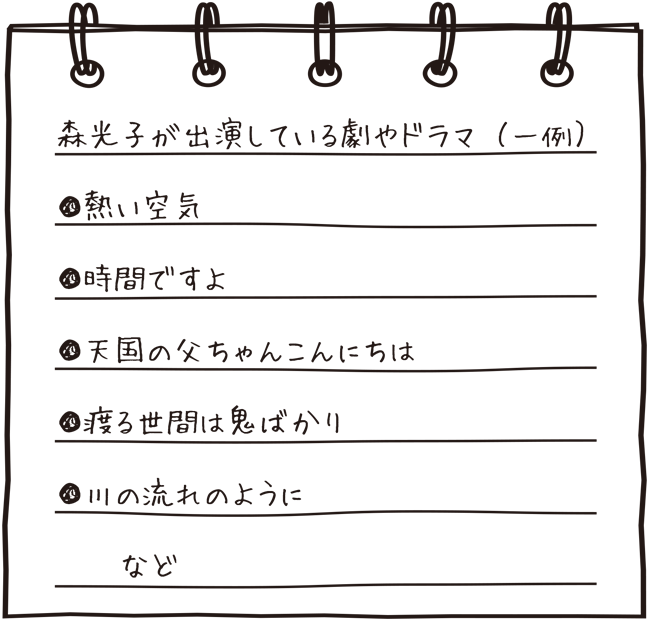 森光子が出演している劇やドラマ（一例）
●熱い空気
●時間ですよ
●天国の父ちゃんこんにちは
●渡る世間は鬼ばかり
●川の流れのように
など